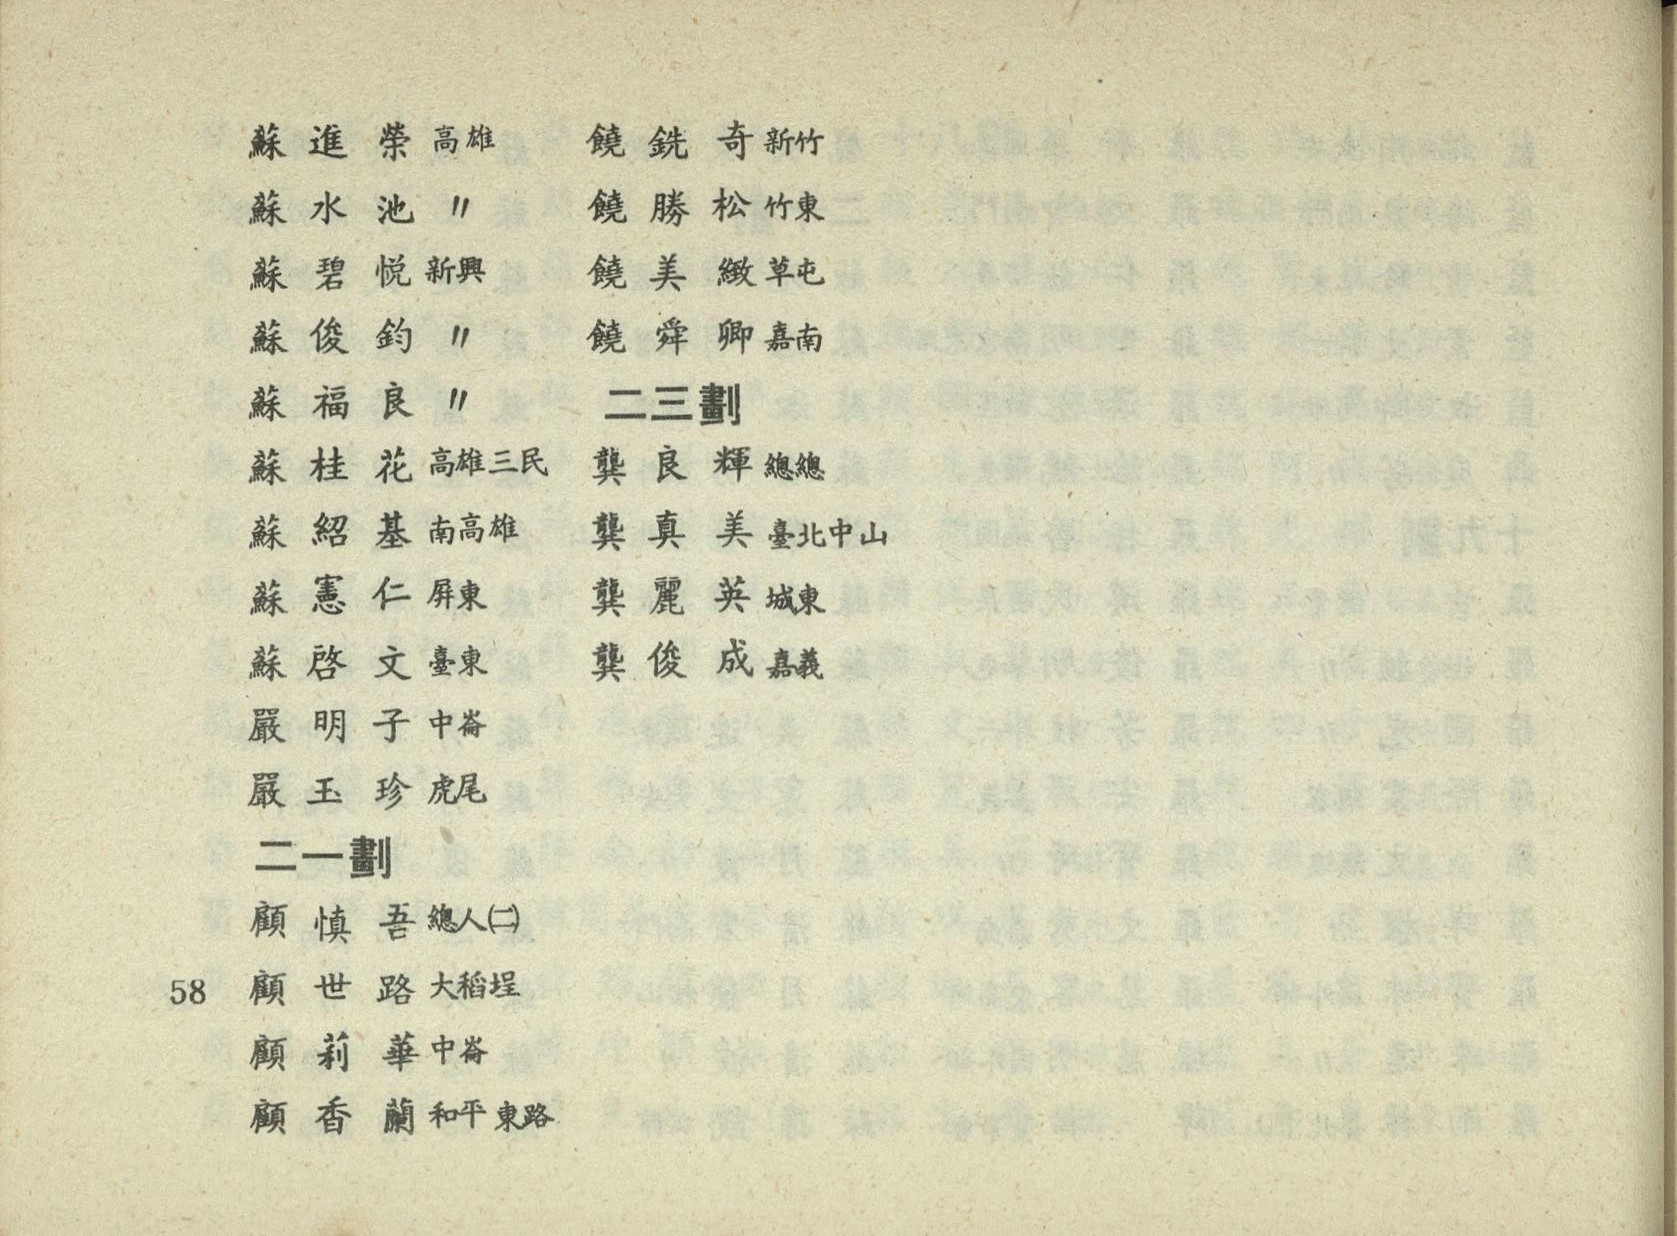 蘇進榮 高雄
蘇水池 〃
蘇碧悦 新興
蘇俊鈞 〃
蘇福良 〃
蘇桂花 高雄三民
蘇紹基 南高雄
蘇憲仁 屏東
蘇啓文 臺東
嚴明子 中崙
嚴玉珍 虎尾
二一劃
顧慎吾 總人㈡
顧世路 大稻埕
顧莉華 中崙
顧香蘭 和平東路
饒銑奇 新竹
饒勝松 竹東
饒美緻 草屯
饒舜卿 嘉南
二三劃
龔良輝 總總
龔真美 臺北中山
龔麗英 城東
龔俊成 嘉義
58